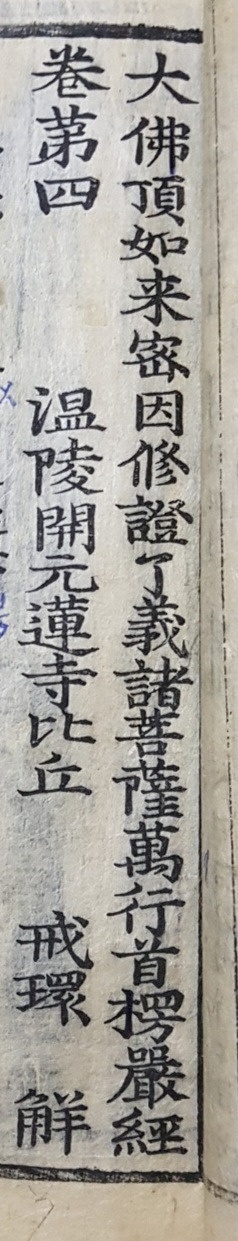 大佛頂如来宻因修證了義諸菩薩萬行首楞嚴經
卷第四 温陵開元蓮寺比丘 戒環 解